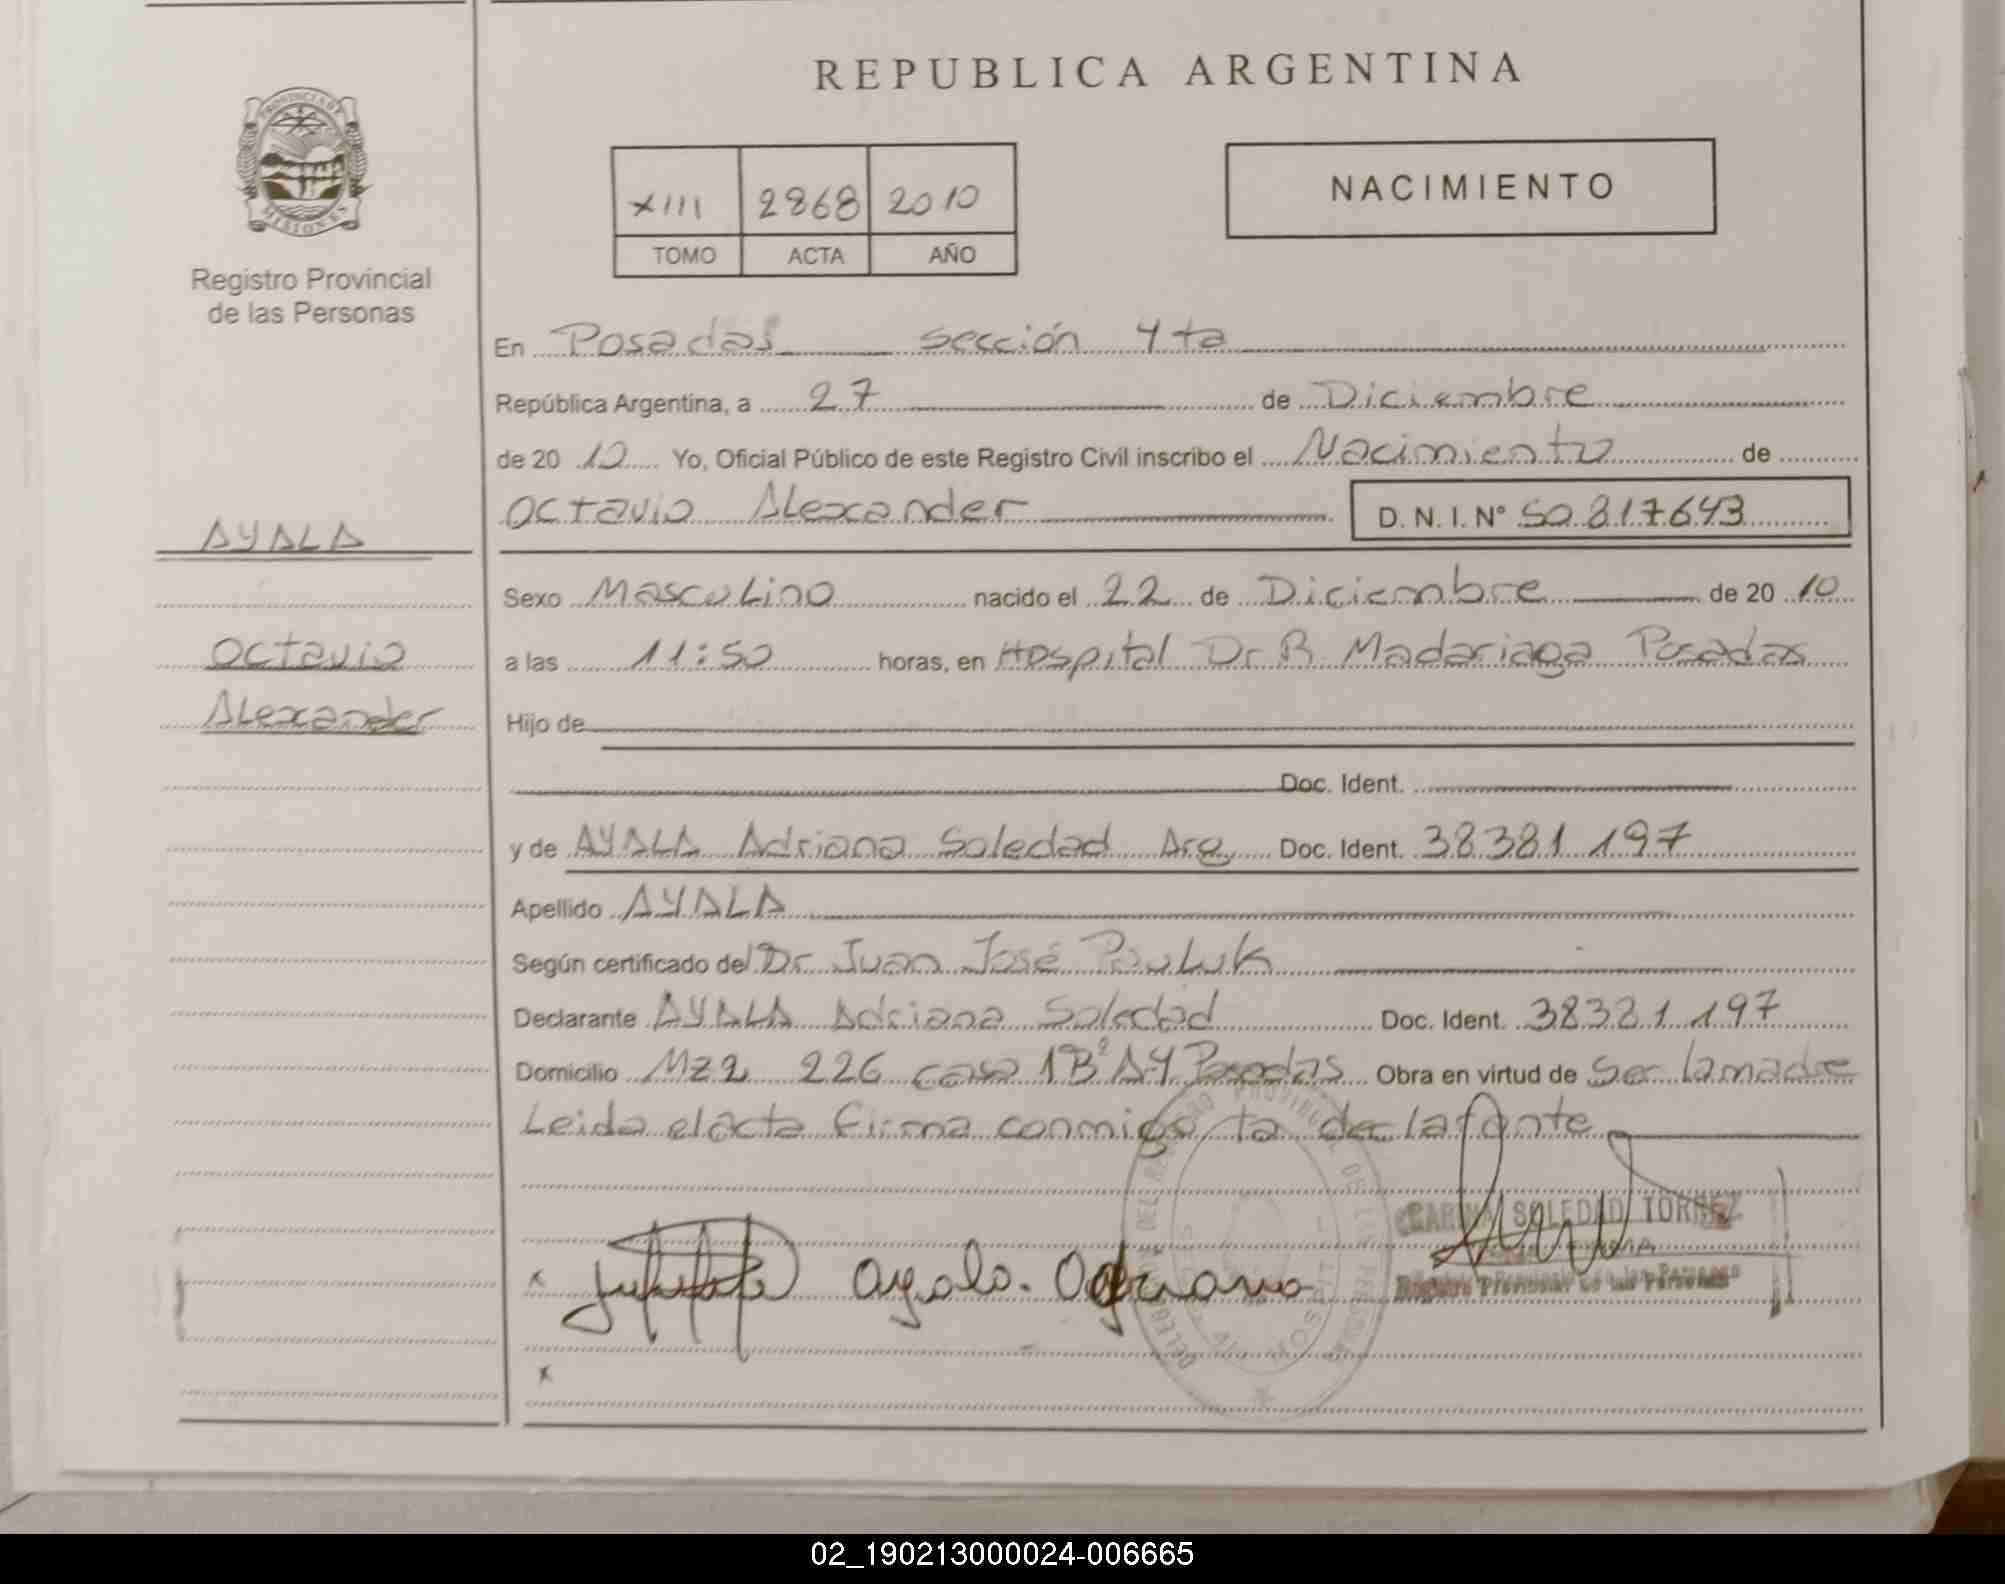 REPUBLICA ARGENTINA
PROVINCIA DE
MISIONES
Registro Provincial
de las Personas
XIII 2868 2010
TOMO ACTA AÑO
NACIMIENTO
En Posadas sección 4ta
República Argentina, a 27 de Diciembre
de 20 10 Yo, Oficial Público de este Registro Civil inscribo el Nacimiento de
Octavio Alexander D. N. I. N° 50.817.643
AYALA
Octavio
Alexander
Sexo Masculino nacido el 22 de Diciembre de 20 10
a las 11:50 horas, en Hospital Dr R. Madariaga Posadas
Hijo de
Doc. Ident.
y de AYALA Adriana Soledad Arg Doc. Ident. 38381197
Apellido AYALA
Según certificado del Dr. Juan José Pauluk
Declarante AYALA Adriana Soledad Doc. Ident. 38381197
Domicilio Mz2 226 casa 1 B° A-4 Posadas Obra en virtud de Ser la madre
Leida el acta firma conmigo ta de la fante
x Ayala Adriana
CARINA SOLEDAD TORREZ
Registro Provincial de las Personas
x
02_190213000024-006665